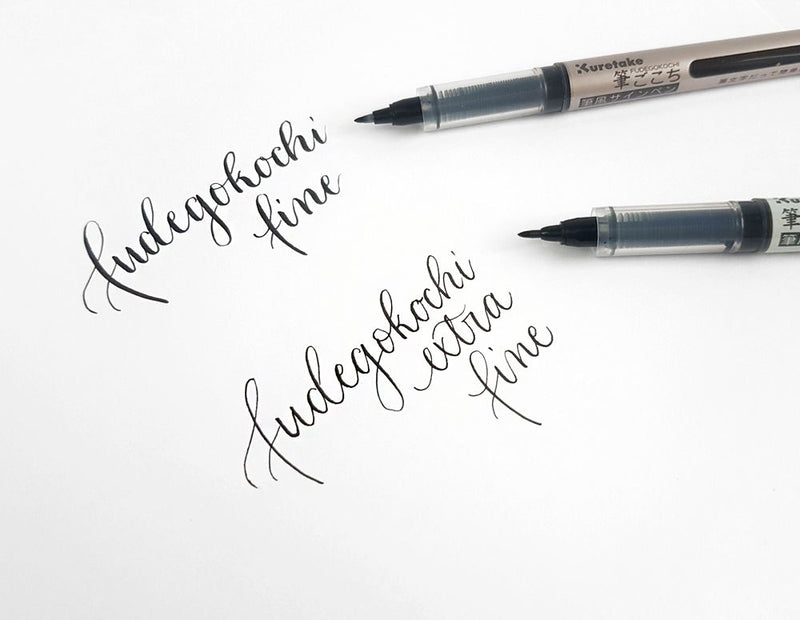 fudegokochi
fine
fudegokochi
extra
fine
Kuretake
FUDEGOKOCHI
筆ごこち
筆風サインペン
Ku
筆
筆